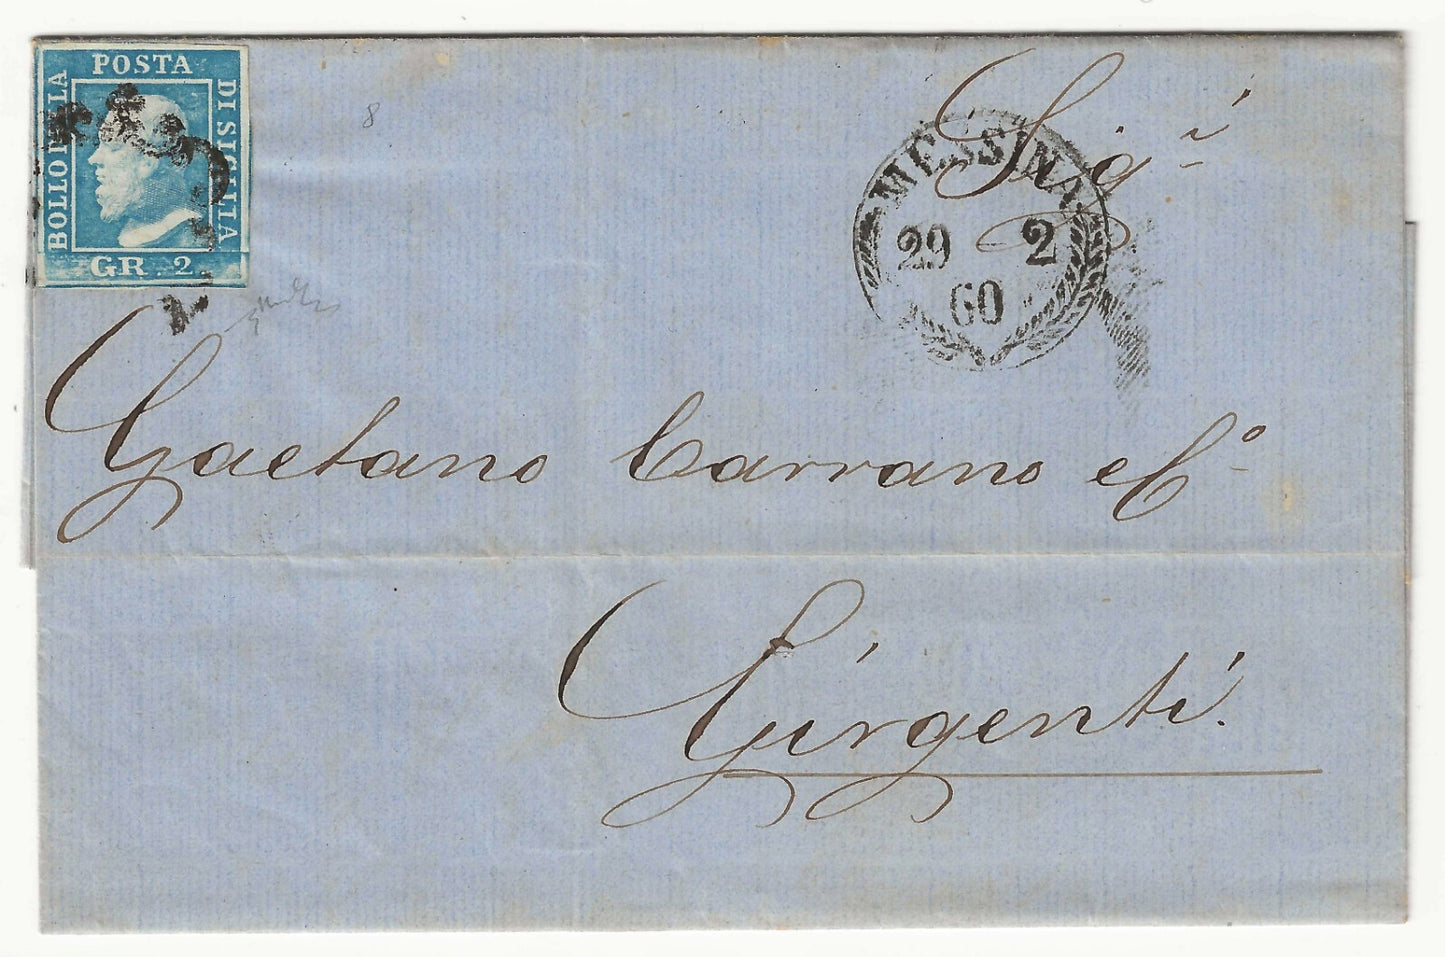 POSTA
BOLLO DELLA
DI SICILIA
GR. 2
8
MESSINA
29 2
60
Sig.i
Gaetano Carrano e C.o
Girgenti.